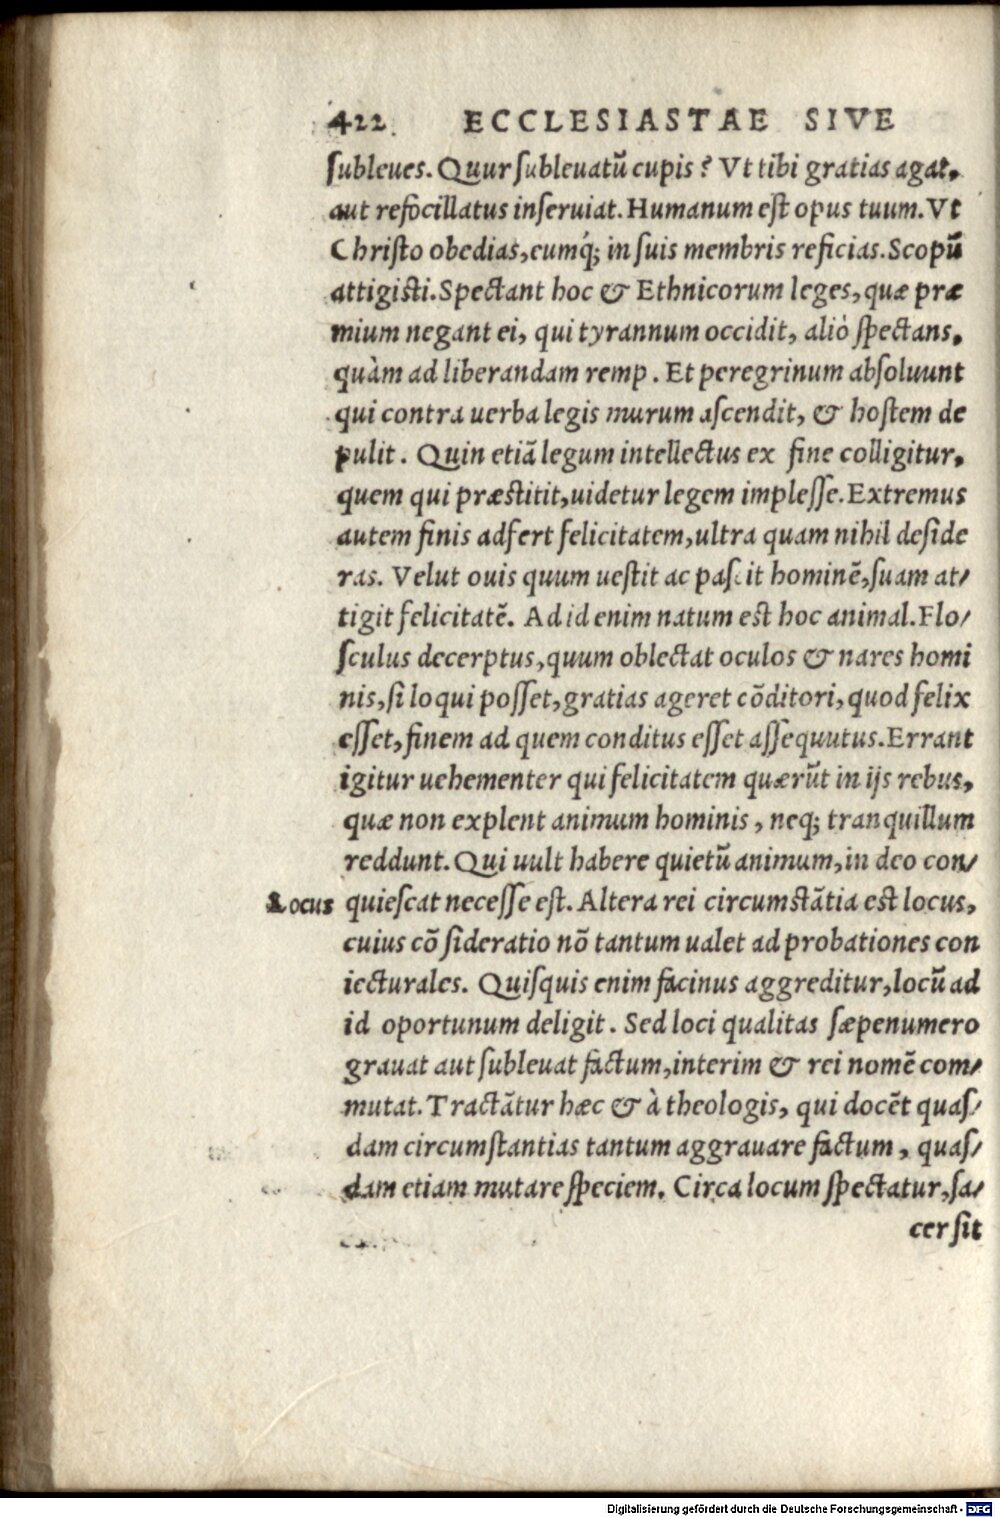 422 ECCLESIASTAE SIVE
subleues. Quur subleuatũ cupis? Vt tibi gratias agat,
aut refocillatus inseruiat. Humanum est opus tuum. Vt
Christo obedias, eumq́; in suis membris reficias. Scopũ
attigisti. Spectant hoc & Ethnicorum leges, quæ præ
mium negant ei, qui tyrannum occidit, aliò spectans,
quàm ad liberandam remp. Et peregrinum absoluunt
qui contra uerba legis murum ascendit, & hostem de
pulit. Quin etiã legum intellectus ex fine colligitur,
quem qui præstitit, uidetur legem implesse. Extremus
autem finis adfert felicitatem, ultra quam nihil deside
ras. Velut ouis quum uestit ac pascit hominẽ, suam at/
tigit felicitatẽ. Ad id enim natum est hoc animal. Flo/
sculus decerptus, quum oblectat oculos & nares homi
nis, si loqui posset, gratias ageret cõditori, quod felix
esset, finem ad quem conditus esset assequutus. Errant
igitur uehementer qui felicitatem quærũt in ijs rebus,
quæ non explent animum hominis, neq; tranquillum
reddunt. Qui uult habere quietũ animum, in deo con/
Locus quiescat necesse est. Altera rei circumstãtia est locus,
cuius cõsideratio nõ tantum ualet ad probationes con
iecturales. Quisquis enim facinus aggreditur, locũ ad
id oportunum deligit. Sed loci qualitas sæpenumero
grauat aut subleuat factum, interim & rei nomẽ com/
mutat. Tractãtur hæc & à theologis, qui docẽt quas/
dam circumstantias tantum aggrauare factum, quas/
dam etiam mutare speciem. Circa locum spectatur, sa/
cer sit
Digitalisierung gefördert durch die Deutsche Forschungsgemeinschaft - DFG